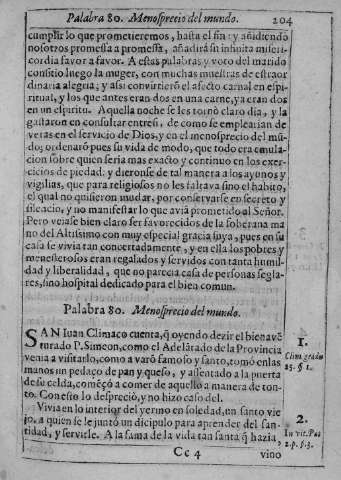 Palabra 80. Menosprecio del mundo. 204
cumplir lo que prometieremos, hasta el fin: y añidiendo
nosotros promessa a promessa, añadirà su infinita miseri-
cordia favor a favor. A estas palabras y voto del marido
consitio luego la muger, con muchas muestras de estraor
dinaria alegria; y assi convirtierō el afecto carnal en espi-
ritual, y los que antes eran dos en una carne, ya eran dos
en un espiritu. Aquella noche se les tornò claro dia, y la
gastaron en consultar entre si, de como se emplearian de
veras en el servicio de Dios, y en el menosprecio del mū-
do; ordenarō pues su vida de modo, que todo era emula-
cion sobre quien seria mas exacto y continuo en los exer-
cicios de piedad: y dieronse de tal manera a los ayunos y
vigilias, que para religiosos no les faltava sino el habito,
el qual no quisieron mudar, por conservarse en secreto y
silencio, y no manifestar lo que aviā prometido al Señor.
Pero veiase bien claro ser favorecidos de la soberana ma
no del Altissimo con muy especial gracia suya, pues en su
casa se vivia tan concertadamente, y en ella los pobres y
menesterosos eran regalados y servidos con tanta humil-
dad y liberalidad, que no parecia casa de personas segla-
res, sino hospital dedicado para el bien comun.
Palabra 80. Menosprecio del mundo.
SAN Iuan Climaco cuenta, q̄ oyendo dezir el bienavē
turado P. Simeon, como el Adelātado de la Provincia
venia a visitarlo, como a varō famoso y santo, tomò en las
manos un pedaço de pan y queso, y assentado a la puerta
de su celda, começò a comer de aquello a manera de ton-
to. Con esto lo despreciò, y no hizo caso del.
1.
Clim. gradu
25. § 1.
Vivia en lo interior del yermo en soledad, un santo vie
jo, a quien se le juntò un dicipulo para aprender del san-
tidad, y servirle. A la fama de la vida tan santa q̄ hazia,
2.
In vit. Pat
2. p. § 3.
Cc 4 vino